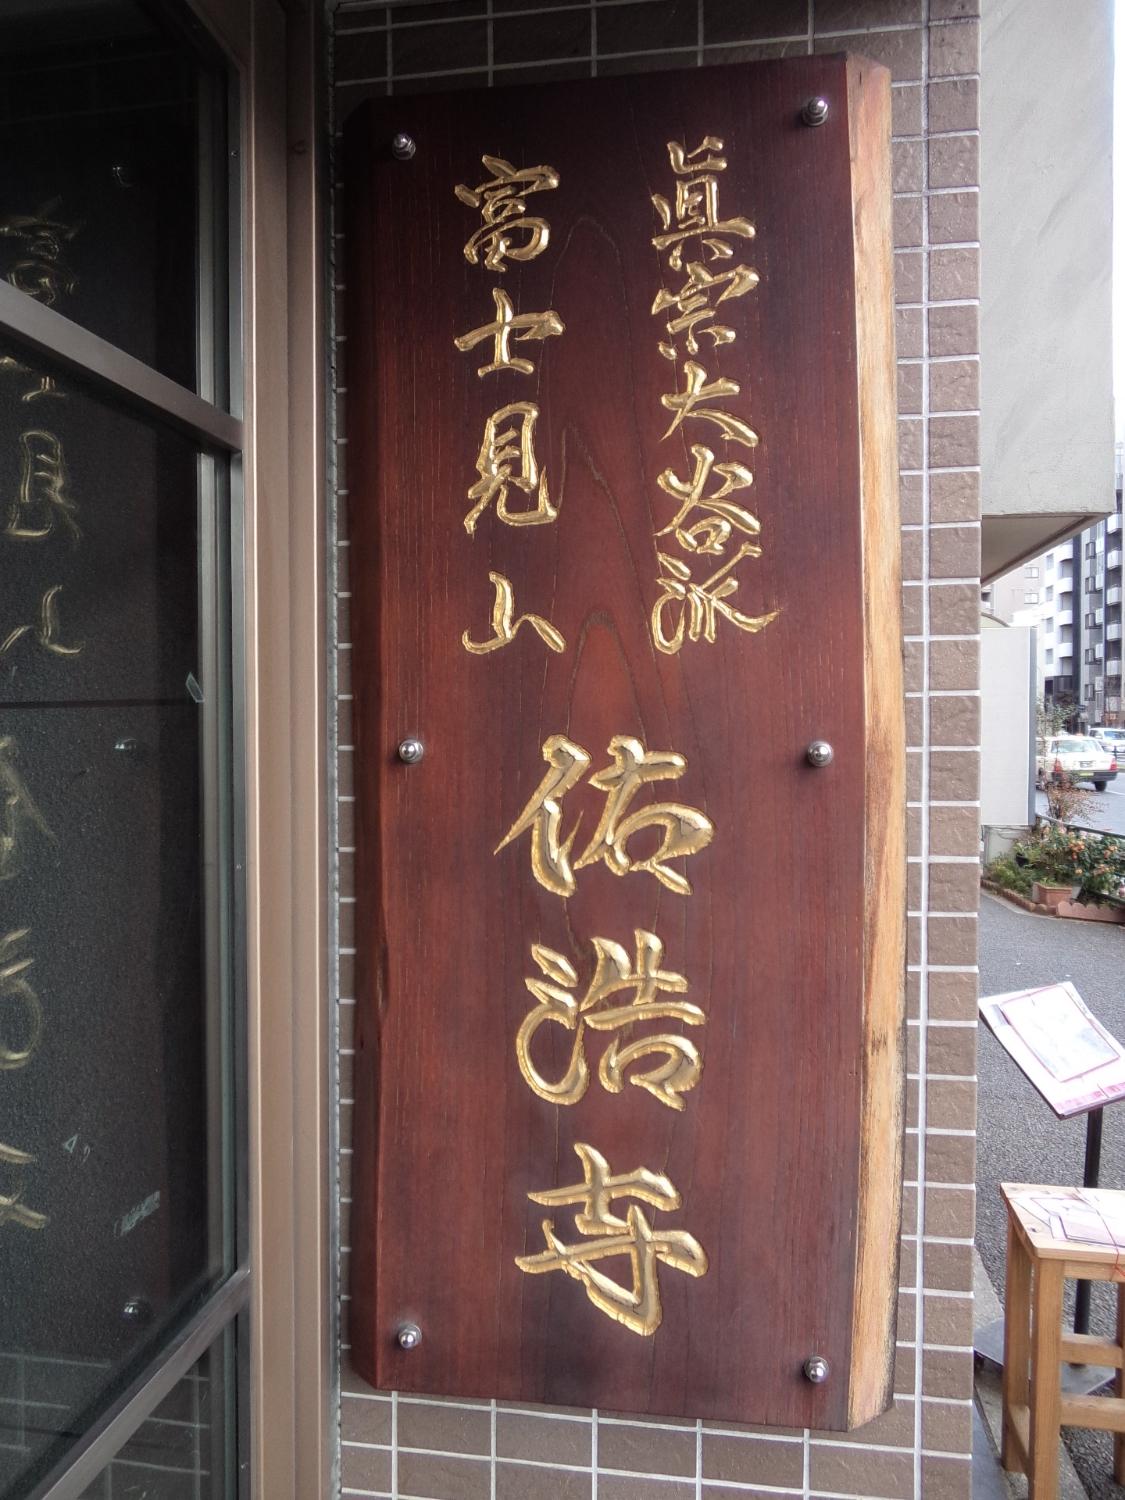 眞宗大谷派
富士見山
佑浩寺